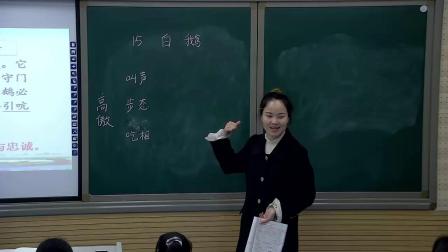 15 白 鹅
叫声
高傲
步态
吃相
。它
守门
鹅必
引吭
与忠诚。